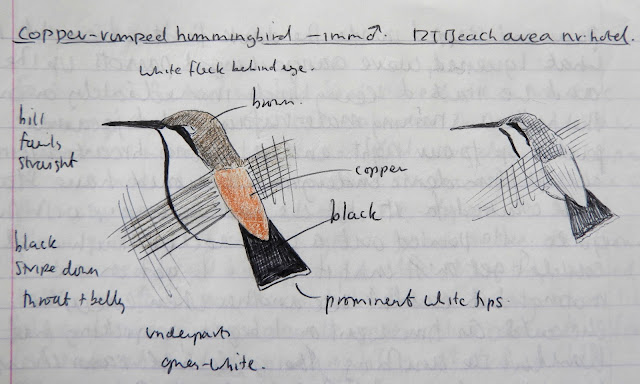 Copper-rumped hummingbird - imm ♂. PT Beach area nr. hotel.
white fleck behind eye.
brown.
bill
fairly
straight
copper
black
black
stripe down
throat + belly
prominent white tips.
underparts
grey-white.